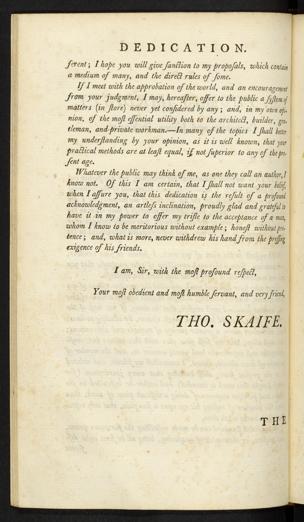 DEDICATION.
ſerent; I hope you will give ſanction to my propoſals, which contain
a medium of many, and the direct rules of ſome.
If I meet with the approbation of the world, and an encouragement
from your judgment, I may, hereafter, offer to the public a ſyſtem of
matters (in ſtore) never yet conſidered by any; and, in my own opi-
nion, of the moſt eſſential utility both to the architect, builder, gen-
tleman, and private workman.—In many of the topics I ſhall better
my underſtanding by your opinion, as it is well known, that your
practical methods are at leaſt equal, if not ſuperior to any of the pre-
ſent age.
Whatever the public may think of me, as one they call an author, I
know not. Of this I am certain, that I ſhall not want your belief,
when I aſſure you, that this dedication is the reſult of a profound
acknowledgment, an artleſs inclination, proudly glad and grateful to
have it in my power to offer my trifle to the acceptance of a man,
whom I know to be meritorious without example; honeſt without pre-
tence; and, what is more, never withdrew his hand from the preſſing
exigence of his friends.
I am, Sir, with the moſt profound reſpect,
Your moſt obedient and moſt humble ſervant, and very friend,
THO. SKAIFE.
THE